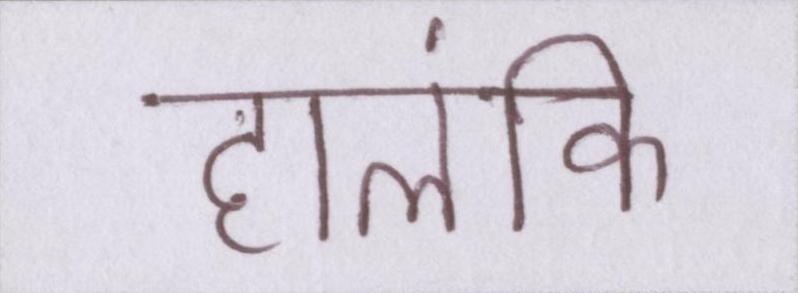 हालंकि